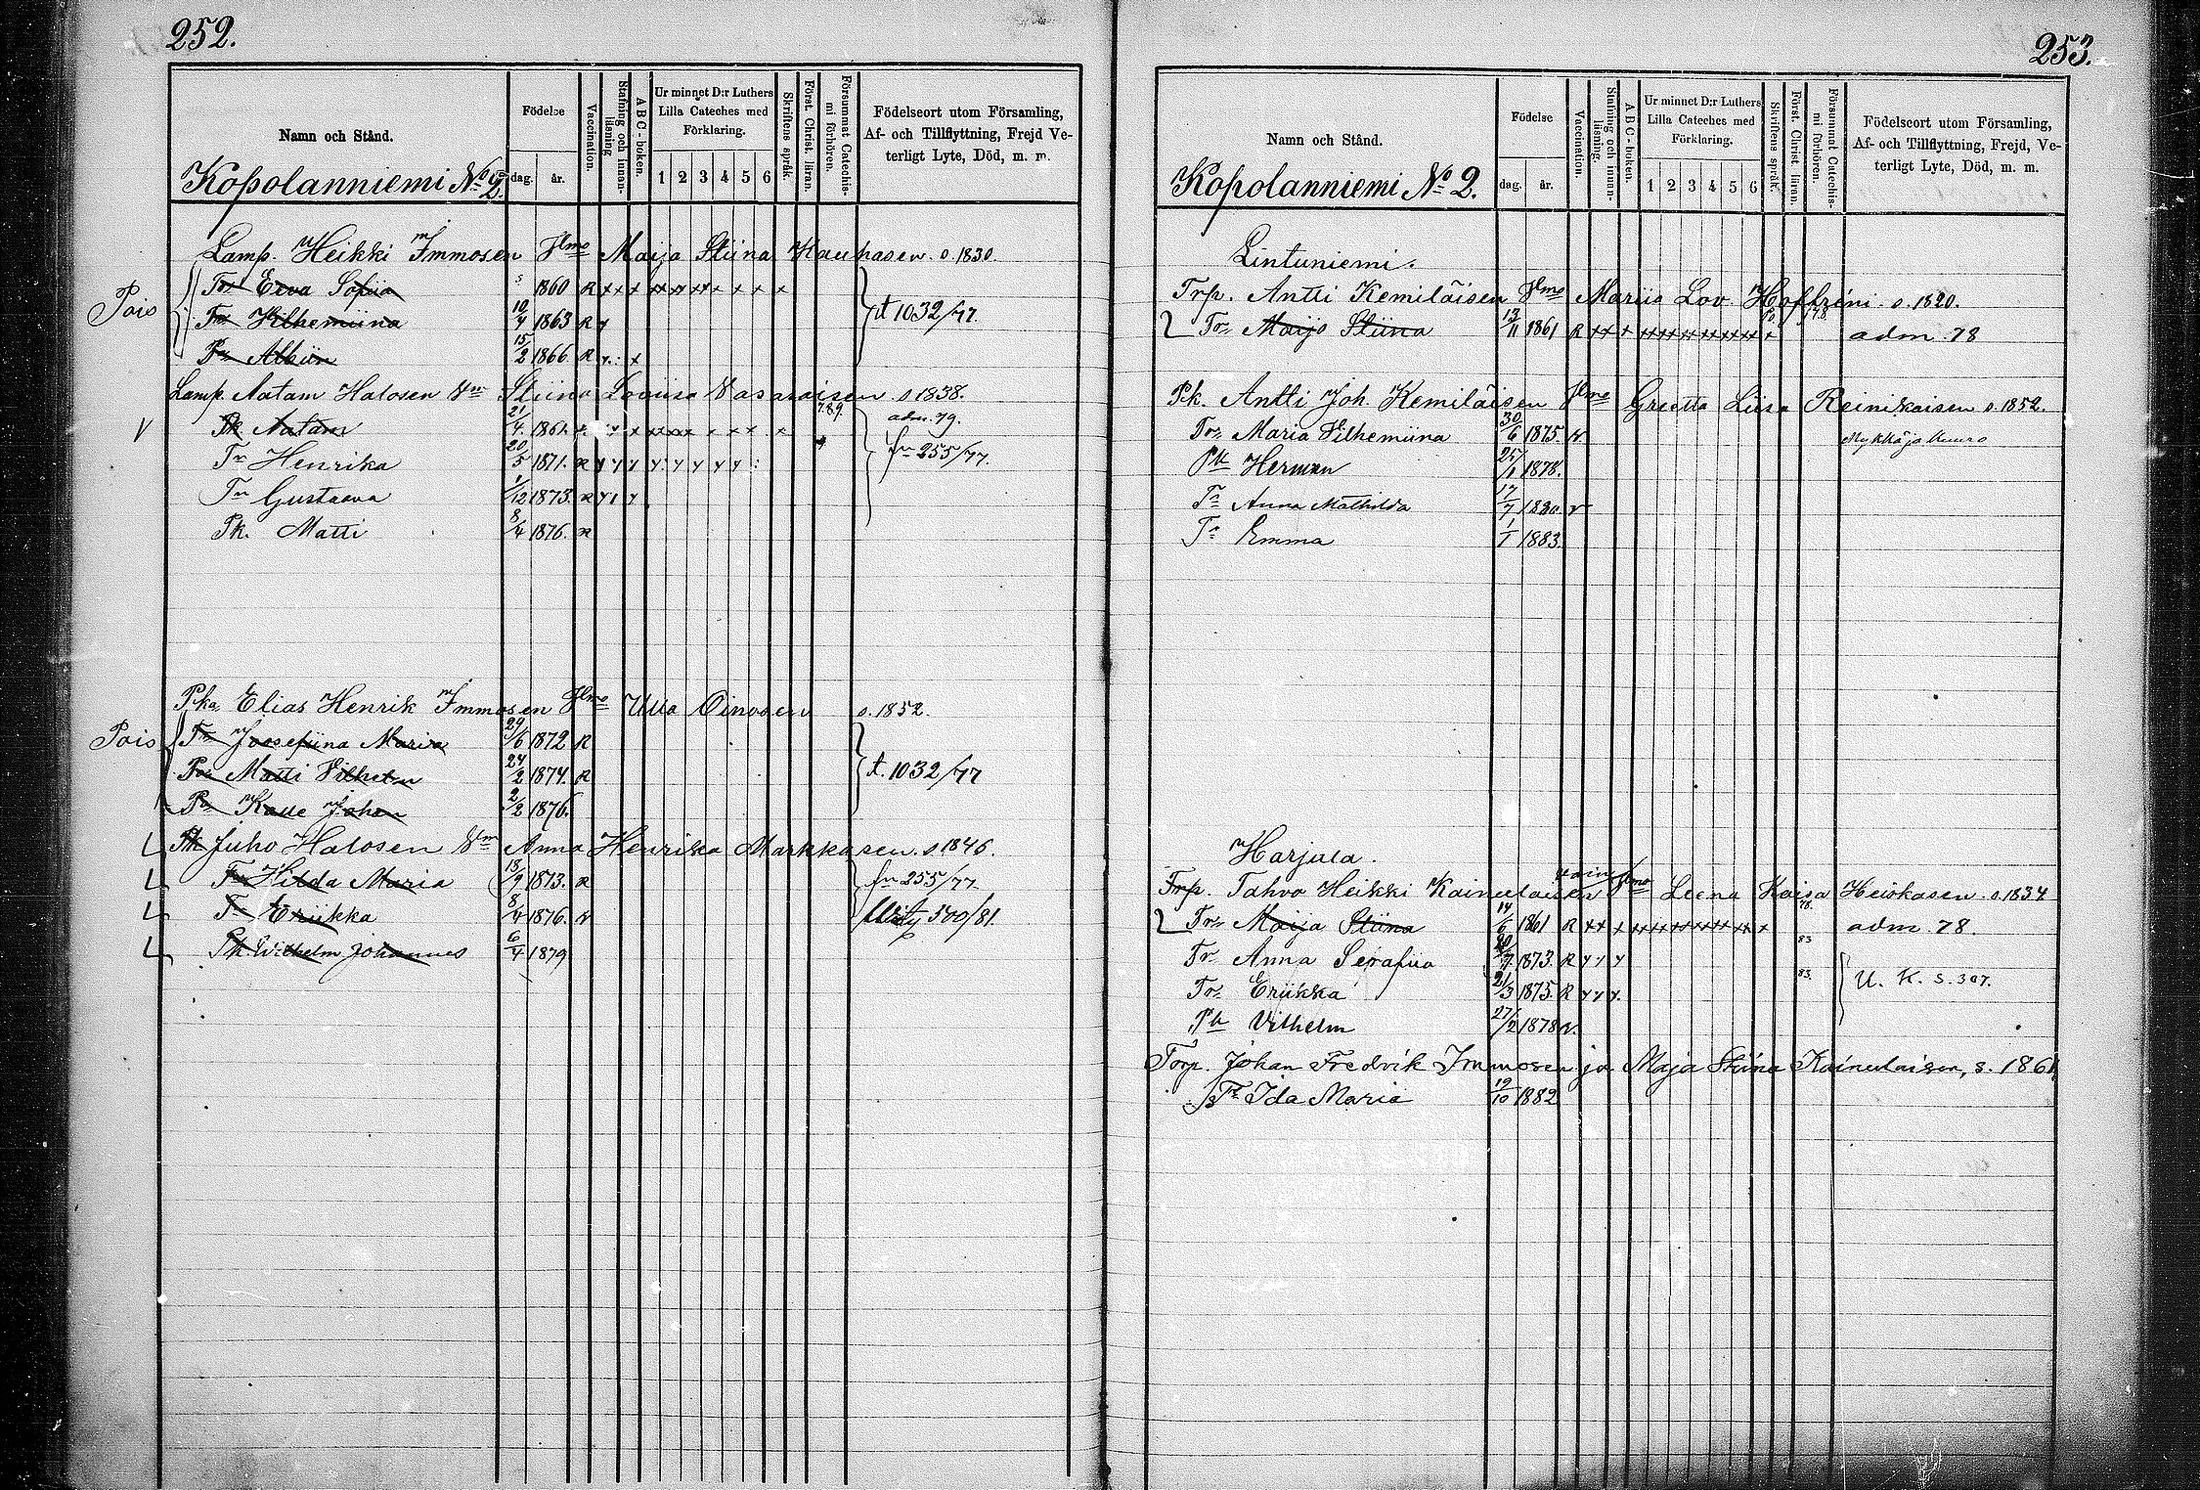 252.
Namn och Stånd.
Födelse
dag.
år.
Vaccination.
Stafning och innanläsning
ABC-boken.
Ur minnet D:r Luthers
Lilla Cateches med
Förklaring.
1 2 3 4 5 6
Skriftens språk.
Först. Christ. läran.
Försummat Catechismi förhören.
Födelseort utom Församling,
Af- och Tillflyttning, Frejd Ve-
terligt Lyte, Död, m. m.
Kopolanniemi No 2.
Lamp. Heikki Immosen Maija Stiina Kauhasen s. 1830.
Pois
Eeva Sofiia 1860 R x x x
Vilhemiina 10/4 1863 R
t 1032/77.
Albiin 15/2 1866 R
Lamp. Aatam Halosen Stiina Loviisa Vasaraisen s 1838.
V Pk Aatam 21/4 1861. adm. 79.
Tr Henrika 20/5 1871. R fr 255/77.
Tr Gustaava 1/12 1873. R
Pk. Matti 8/4 1876. R
Elias Henrik Immosen Ulla Oinosen s. 1852.
Pois Tr Joosefiina Maria 29/6 1872 R
Matti Vilhelm 24/2 1874. R t. 1032/77
Kalle Johan 2/2 1876.
Pk Juho Halosen Anna Henrika Markkasen. s 1846.
Tr Hilda Maria 18/9 1873. R fr 255/77.
Tr Eriikka 8/4 1876. 500/81.
Pk. Wilhelm Johannes 6/4 1879
253.
Namn och Stånd.
Födelse
dag.
år.
Vaccination.
Stafning och innanläsning.
ABC-boken.
Ur minnet D:r Luthers
Lilla Cateches med
Förklaring.
1 2 3 4 5 6
Skriftens språk.
Först. Christ. läran.
Försummat Catechismi förhören.
Födelseort utom Församling,
Af- och Tillflyttning, Frejd, Ve-
terligt Lyte, Död, m. m.
Kopolanniemi No 2.
Lintuniemi.
Trp. Antti Kemiläisen Mariia Lov. Hoffréni. s. 1820.
Tr Maija Stiina 13/11 1861 R x x x adm. 78
Pk. Antti Joh. Kemiläisen Greetta Liisa Reinikaisen s. 1852.
Tr Maria Vilhemiina 30/6 1875.
Pk Herman 25/11 1878.
Tr Anna Mathilda 17/7 1880.
Tr Emma 1/1 1883.
Harjula.
Trp. Tahvo Heikki Kainulaisen Leena Kaisa Heiskasen. s. 1834
Tr Maija Stiina 14/6 1861 R x x x adm. 78.
Tr Anna Serafiia 20/7 1873. R 83
Tr Eriikka 21/3 1875. R 83. U. K. S. 307.
Pk Vilhelm 27/2 1878
Torp. Johan Fredrik Immosen ja Maja Stiina Kainulaisen, s. 1861
Tr Ida Maria 19/10 1882